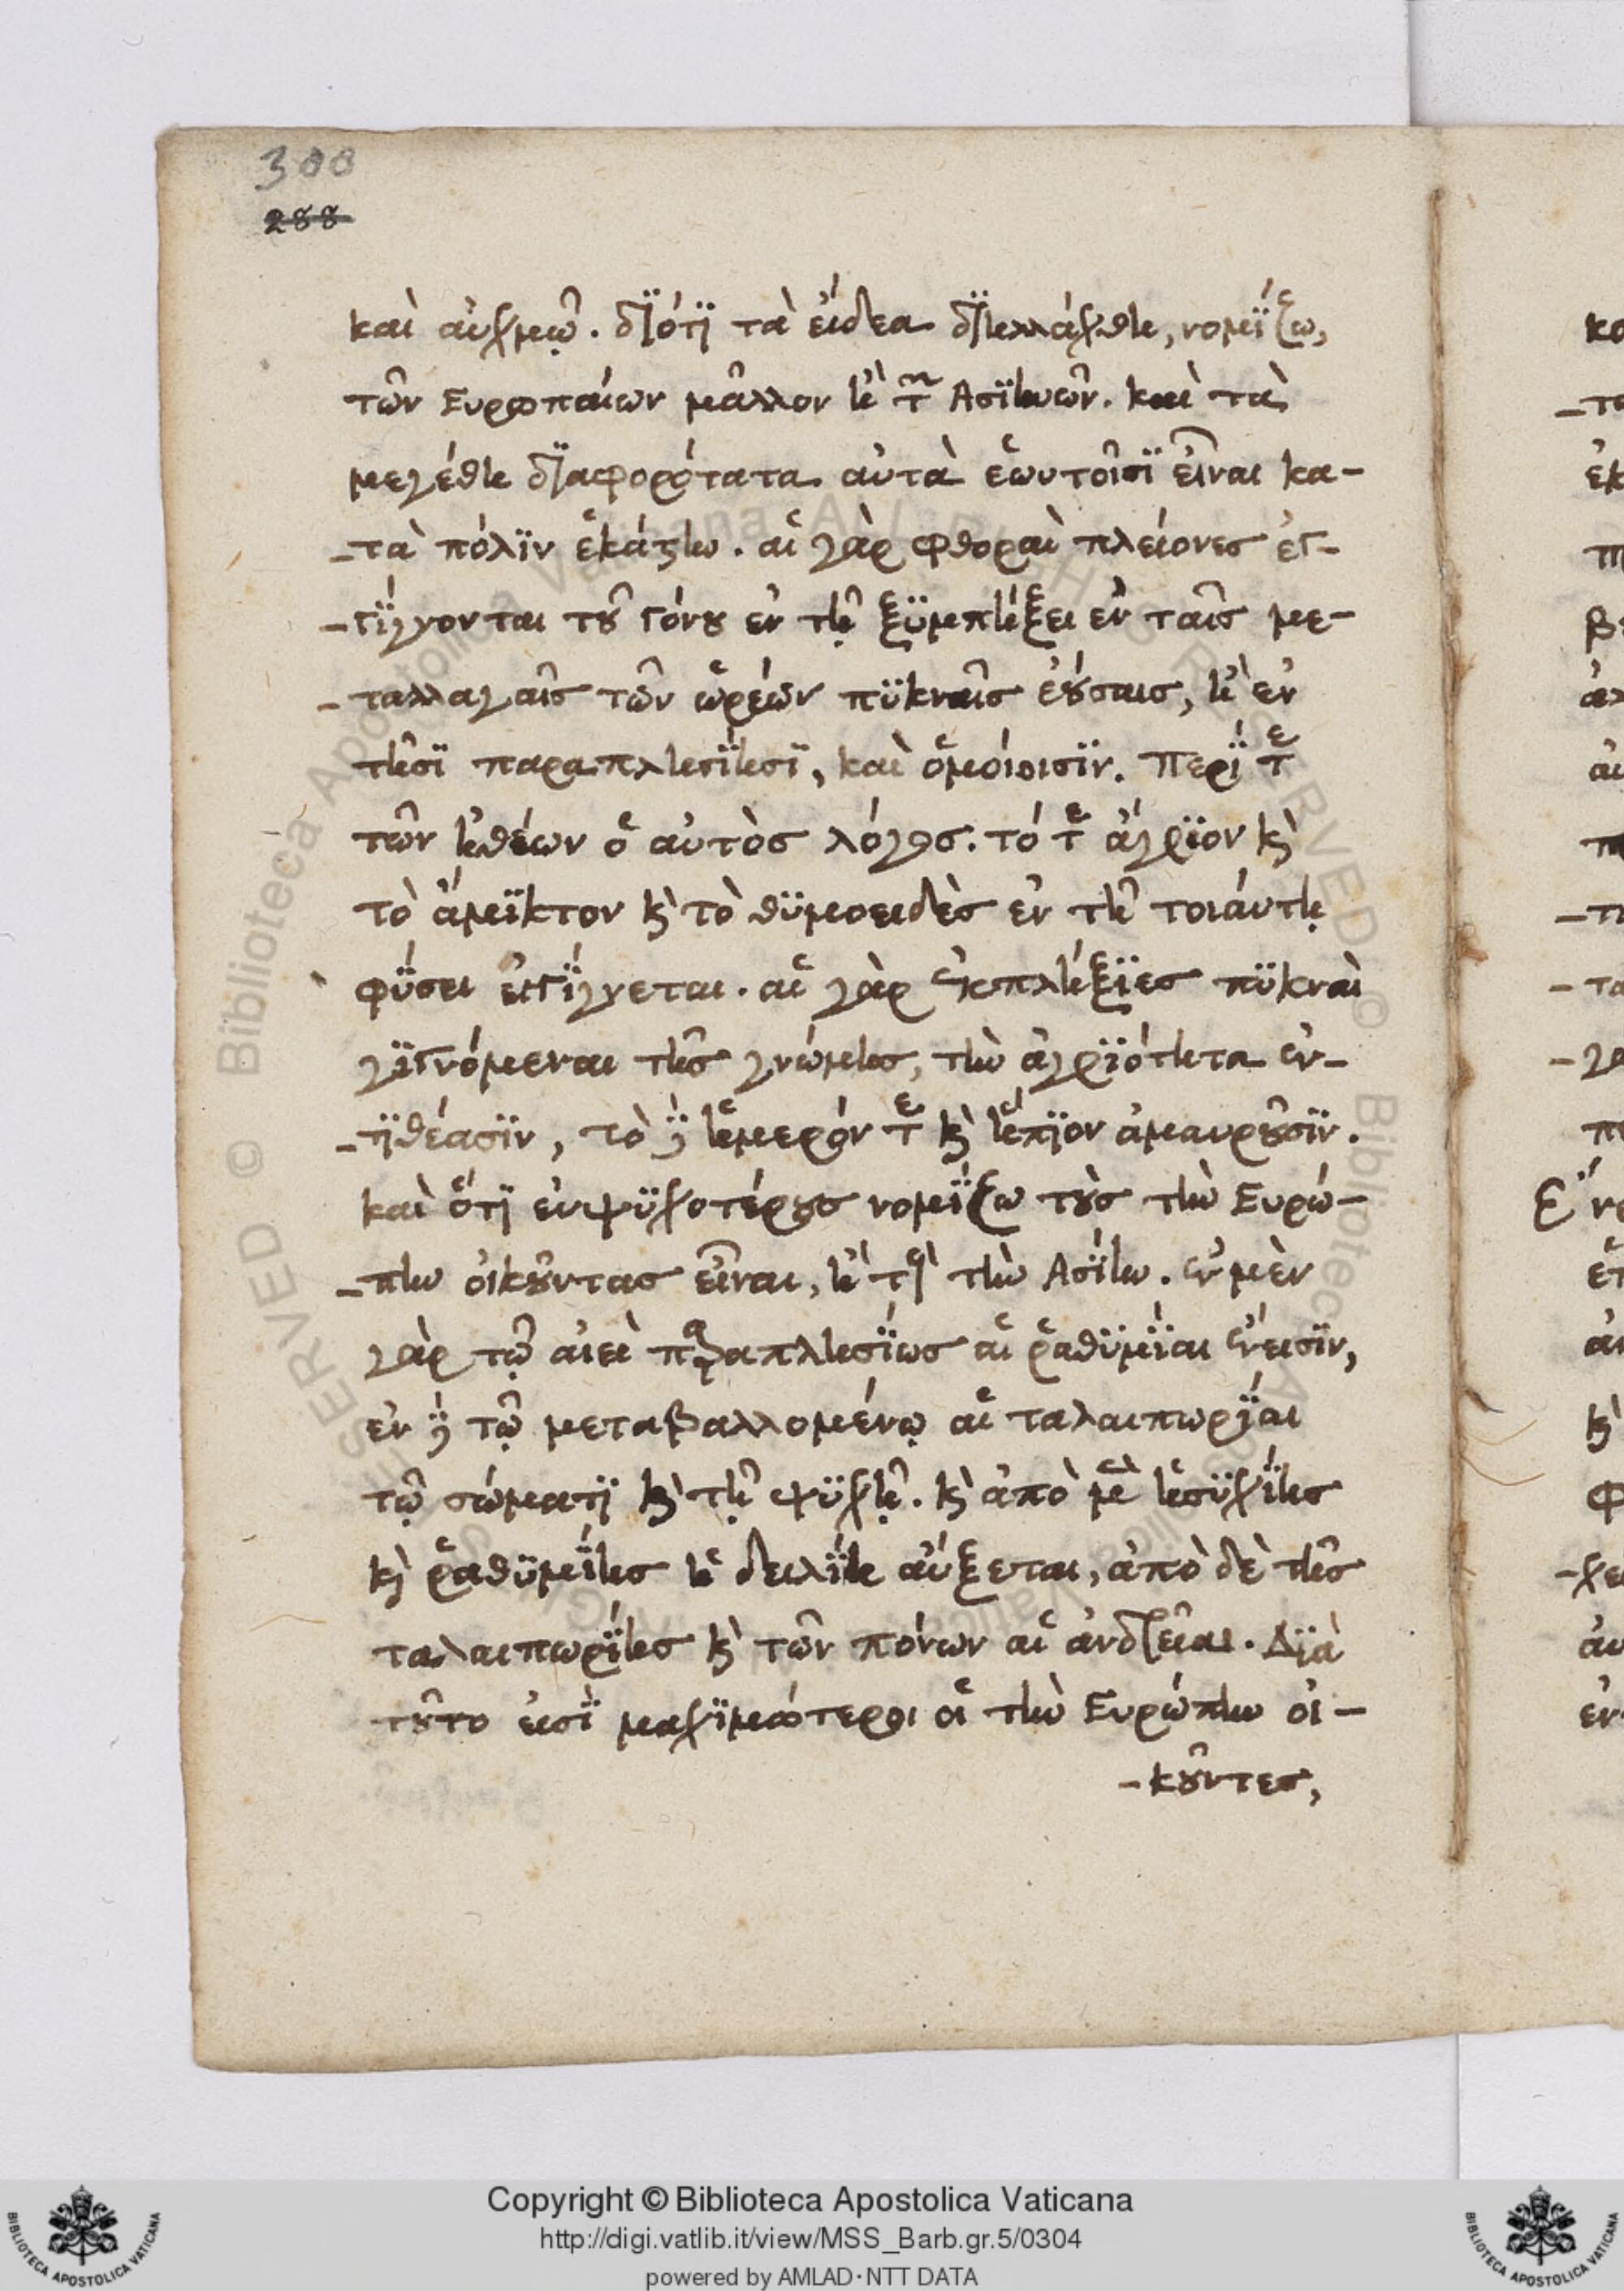 300
288
καὶ αὐχμῶ. διότι τὰ εἴδεα διηλλάχθη, νομίζω,
τῶν Ευρωπαίων μᾶλλον ἢ τῶν Ασιηνῶν. καὶ τὰ
μεγέθη διαφορότατα αὐτὰ ἑωυτοῖσι εἶναι κα-
-τὰ πόλιν ἑκάστην. αἱ γὰρ φθοραὶ πλείονες ἐγ-
-γίγνονται τοῦ γόνου ἐν τῇ ξυμπήξει ἐν ταῖς με-
-ταλλαγαῖς τῶν ὡρέων πυκναῖς ἐούσαις, ἢ ἐν
τῇσι παραπλησίῃσι, καὶ ὁμοίοισιν. Περί τε
τῶν ἠθέων ὁ αὐτὸς λόγος. τό τε ἄγριον καὶ
τὸ ἄμεικτον καὶ τὸ θυμοειδὲς ἐν τῇ τοιαύτῃ
φύσει ἐγγίγνεται. αἱ γὰρ ἐκπλήξιες πυκναὶ
γιγνόμεναι τῆς γνώμης, τὴν ἀγριότητα ἐν-
-τιθέασιν, τὸ δὲ ἥμερόν τε καὶ ἤπιον ἀμαυροῦσιν.
καὶ ὅτι εὐψυχοτέρους νομίζω τοὺς τὴν Ευρώ-
-πην οἰκοῦντας εἶναι, ἢ τοὺς τὴν Ασίην. ἐν μὲν
γὰρ τῷ αἰεὶ παραπλησίως αἱ ῥαθυμίαι ἔνεισιν,
ἐν δὲ τῷ μεταβαλλομένῳ αἱ ταλαιπωρίαι
τῷ σώματι καὶ τῇ ψυχῇ. καὶ ἀπὸ μὲν ἡσυχίης
καὶ ῥαθυμίης ἡ δειλίη αὔξεται, ἀπὸ δὲ τῆς
ταλαιπωρίης καὶ τῶν πόνων αἱ ἀνδρεῖαι. Διὰ
τοῦτο εἰσὶ μαχιμώτεροι οἱ τὴν Ευρώπην οἰ-
-κοῦντες,
Copyright © Biblioteca Apostolica Vaticana
http://digi.vatlib.it/view/MSS_Barb.gr.5/0304
powered by AMLAD·NTT DATA